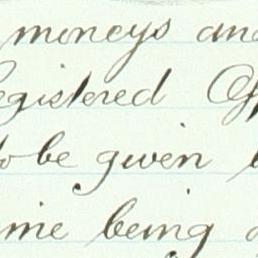 moneys and
egistered Off
to be given
ime being